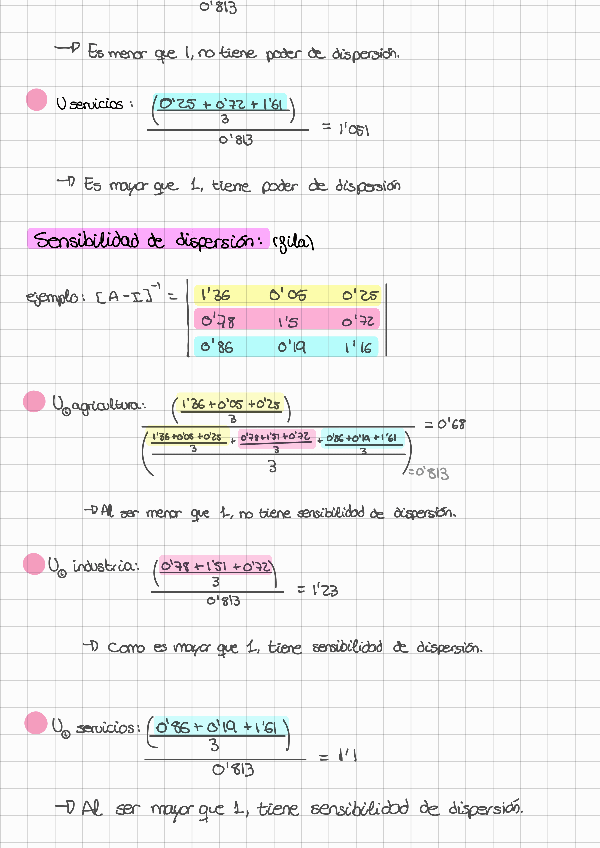 0'813
→ Es menor que 1, no tiene poder de dispersión.
U servicios: (0'25 + 0'72 + 1'61 / 3) / 0'813 = 1'051
→ Es mayor que 1, tiene poder de dispersión
Sensibilidad de dispersión: (fila)
ejemplo: [A-I]⁻¹ =
1'36 0'05 0'25
0'78 1'5 0'72
0'86 0'19 1'16
U₀ agricultura: (1'36+0'05+0'25 / 3) / (1'36+0'05+0'25 / 3 + 0'78+1'51+0'72 / 3 + 0'86+0'19+1'61 / 3 / 3) = 0'68
=0'813
→ Al ser menor que 1, no tiene sensibilidad de dispersión.
U₀ industria: (0'78+1'51+0'72 / 3) / 0'813 = 1'23
→ Como es mayor que 1, tiene sensibilidad de dispersión.
U₀ servicios: (0'86 + 0'19 + 1'61 / 3) / 0'813 = 1'1
→ Al ser mayor que 1, tiene sensibilidad de dispersión.